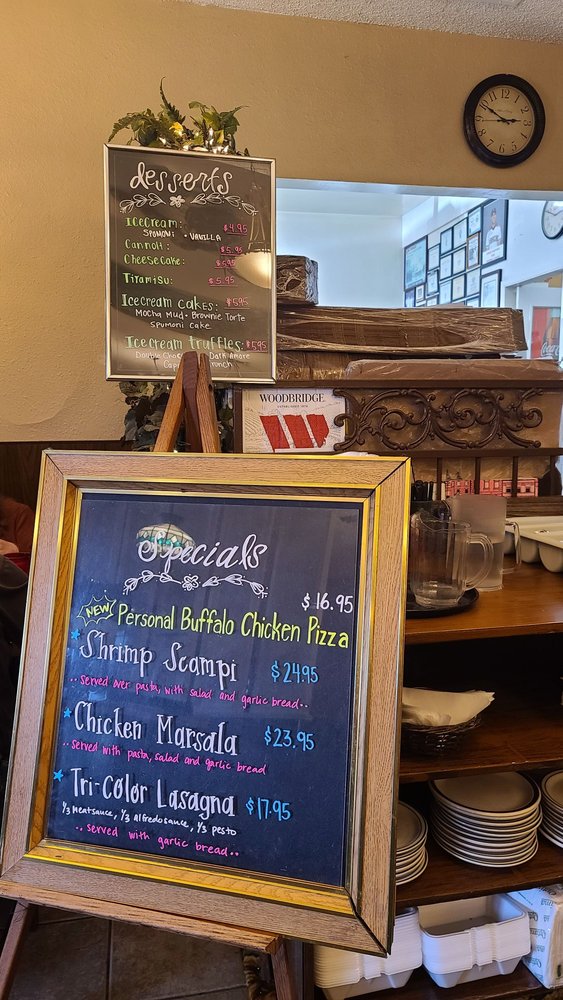 desserts
IceCream: $4.95
SPUMONI • VANILLA
Cannoli: $5.95
Cheesecake: $5.95
Tiramisu: $5.95
Icecream Cakes: $5.95
Mocha Mud • Brownie Torte
Spumoni Cake
Icecream truffles: $5.95
Dark Amore
WOODBRIDGE
W
Specials
$16.95
NEW Personal Buffalo Chicken Pizza
Shrimp Scampi $24.95
..served over pasta, with salad and garlic bread..
Chicken Marsala $23.95
..served with pasta, salad and garlic bread
Tri-Color Lasagna $17.95
1/3 Meatsauce, 1/3 alfredo sauce, 1/3 pesto
..served with garlic bread..